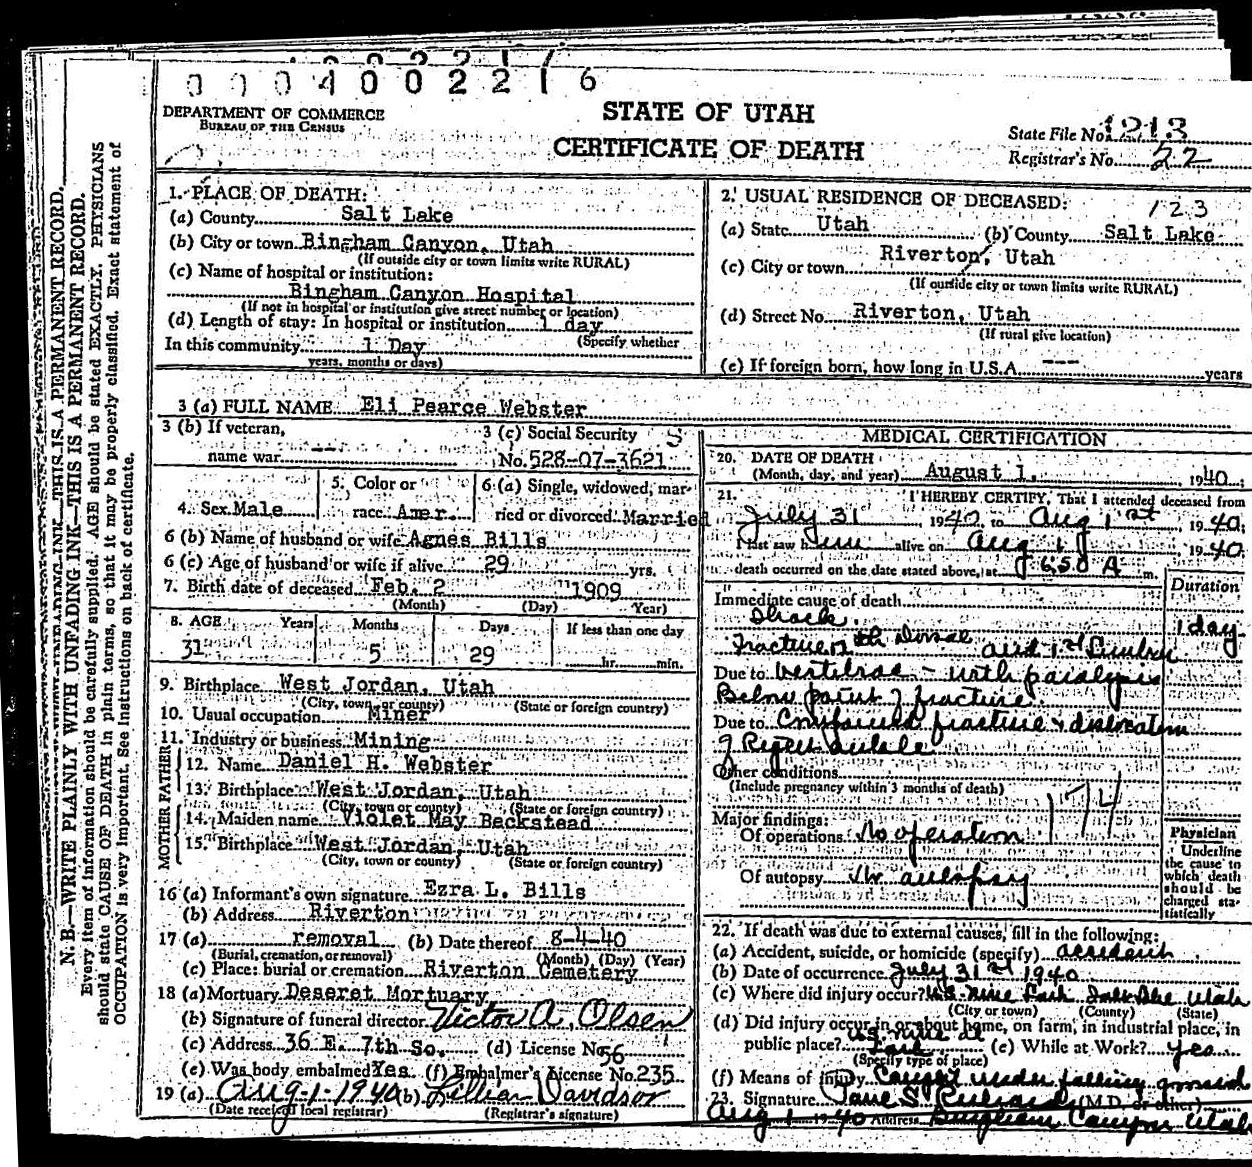 0004002216
DEPARTMENT OF COMMERCE
BUREAU OF THE CENSUS
STATE OF UTAH
CERTIFICATE OF DEATH
State File No. 1213
Registrar's No. 22
N. B.—WRITE PLAINLY WITH UNFADING INK—THIS IS A PERMANENT RECORD.
Every item of information should be carefully supplied. AGE should be stated EXACTLY. PHYSICIANS
should state CAUSE OF DEATH in plain terms, so that it may be properly classified. Exact statement of
OCCUPATION is very important. See instructions on back of certificate.
1. PLACE OF DEATH:
(a) County Salt Lake
(b) City or town Bingham Canyon, Utah
(If outside city or town limits write RURAL)
(c) Name of hospital or institution:
Bingham Canyon Hospital
(If not in hospital or institution give street number or location)
(d) Length of stay: In hospital or institution 1 day
(Specify whether
In this community 1 Day
years, months or days)
2. USUAL RESIDENCE OF DECEASED:
123
(a) State Utah (b) County Salt Lake
(c) City or town Riverton, Utah
(If outside city or town limits write RURAL)
(d) Street No. Riverton, Utah
(If rural give location)
(e) If foreign born, how long in U.S.A. --- years
3 (a) FULL NAME Eli Pearce Webster
3 (b) If veteran,
name war ---
3 (c) Social Security
No. 528-07-3621
4. Sex Male
5. Color or
race Amer.
6 (a) Single, widowed, mar-
ried or divorced Married
6 (b) Name of husband or wife Agnes Bills
6 (c) Age of husband or wife if alive 29 yrs.
7. Birth date of deceased Feb. 2 1909
(Month) (Day) Year)
8. AGE Years Months Days If less than one day
31 5 29 hr. min.
9. Birthplace West Jordan, Utah
(City, town, or county) (State or foreign country)
10. Usual occupation Miner
11. Industry or business Mining
FATHER
12. Name Daniel H. Webster
13. Birthplace West Jordan, Utah
(City, town or county) (State or foreign country)
MOTHER
14. Maiden name Violet May Beckstead
15. Birthplace West Jordan, Utah
(City, town or county) (State or foreign country)
16 (a) Informant's own signature Ezra L. Bills
(b) Address Riverton
17 (a) removal (b) Date thereof 8-4-40
(Burial, cremation, or removal) (Month) (Day) (Year)
(c) Place: burial or cremation Riverton Cemetery
18 (a) Mortuary Deseret Mortuary
(b) Signature of funeral director Victor A. Olsen
(c) Address 36 E. 7th So. (d) License No. 56
(e) Was body embalmed Yes (f) Embalmer's License No. 235
19 (a) Aug-1-1940 (b) Lillian Davidson
(Date received local registrar) (Registrar's signature)
MEDICAL CERTIFICATION
20. DATE OF DEATH
(Month, day, and year) August 1, 1940
21. I HEREBY CERTIFY, That I attended deceased from
July 31 1940, to Aug 1st, 1940,
I last saw him alive on Aug 1, 1940.
death occurred on the date stated above, at 650 A m.
Duration
Immediate cause of death
Shock. 1 day
Fracture 12th Dorsal and 1st Lumbar
Due to vertebrae - with paralysis
Below point of fracture.
Due to Compound fracture & dislocation
of Right ankle
Other conditions
(Include pregnancy within 3 months of death)
174
Major findings:
Of operations No operation
Of autopsy No autopsy
Physician
Underline
the cause to
which death
should be
charged sta-
tistically
22. If death was due to external causes, fill in the following:
(a) Accident, suicide, or homicide (specify) accident
(b) Date of occurrence July 31st 1940
(c) Where did injury occur? U.S. Mine Lark Salt Lake Utah
(City or town) (County) (State)
(d) Did injury occur in or about home, on farm, in industrial place, in
public place? U.S. mine at Lark (e) While at Work? yes
(Specify type of place)
(f) Means of injury Caught under falling ground
23. Signature Paul S. Richards (M.D. or other)
Aug 1 1940 Address Bingham Canyon Utah